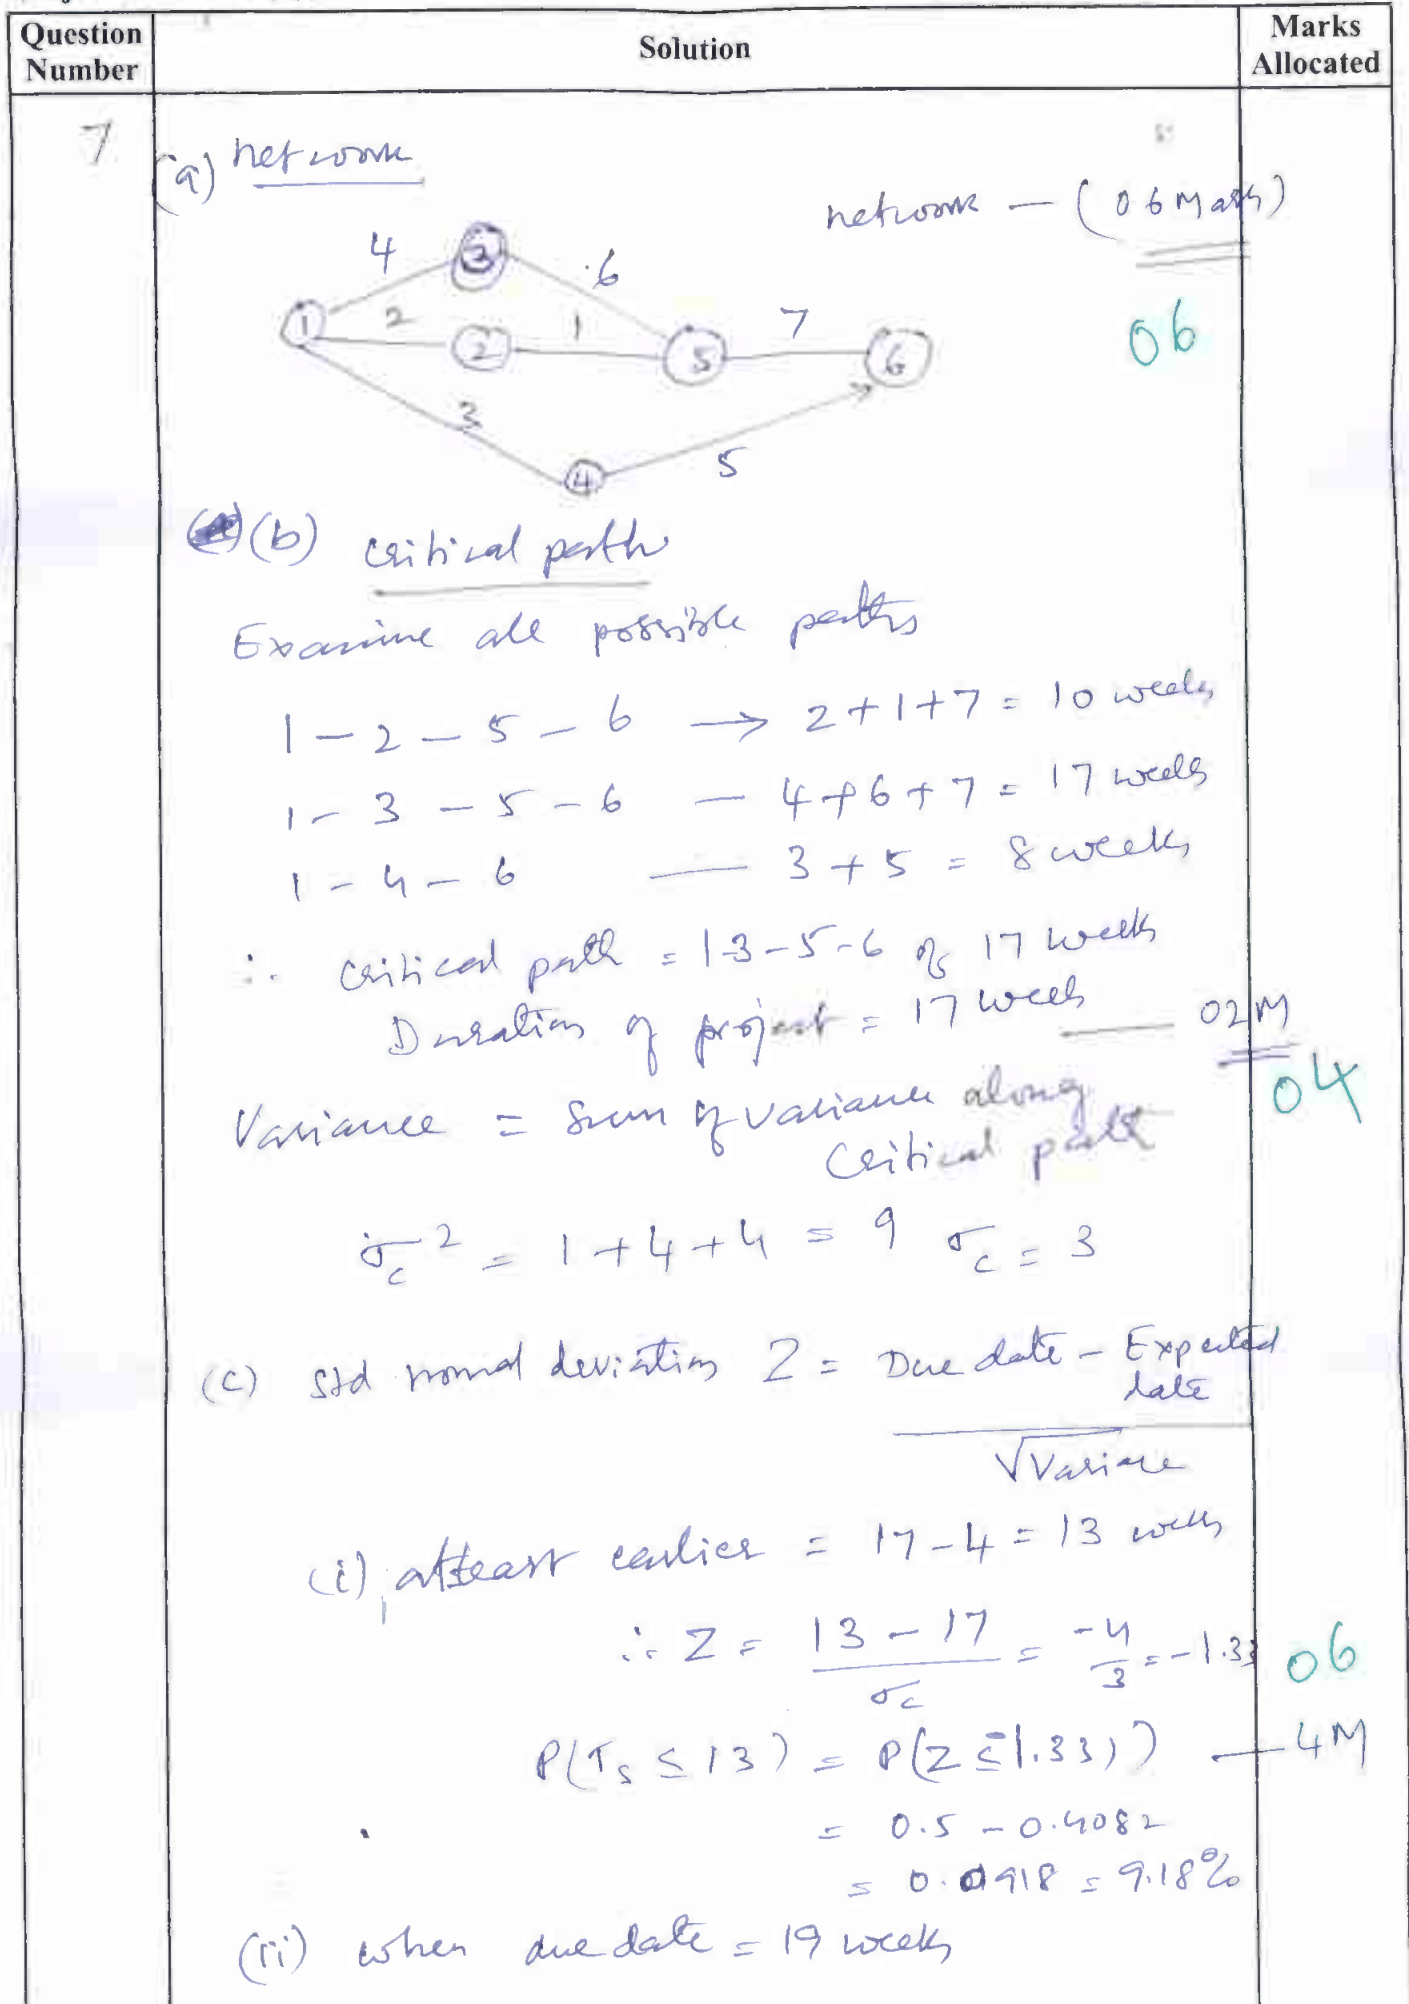 Question Number
Solution
Marks Allocated
7
(a) network
network — (06 Marks)
4
3
6
06
1
2
2
1
5
7
6
3
4
5
(b) critical path
Examine all possible paths
1 – 2 – 5 – 6 → 2+1+7 = 10 weeks
1 – 3 – 5 – 6 — 4+6+7 = 17 weeks
1 – 4 – 6 — 3+5 = 8 weeks
∴ Critical path = 1-3-5-6 of 17 weeks
Duration of project = 17 weeks — 02M
04
Variance = Sum of variance along
Critical path
σc² = 1+4+4 = 9 σc = 3
(c) Std normal deviation Z = Due date – Expected
date
√Variance
(i) atleast earlier = 17–4 = 13 weeks
∴ Z = 13 – 17 / σc = -4/3 = -1.33
06
P(Ts ≤ 13) = P(Z ≤ -1.33) — 4M
= 0.5 – 0.4082
= 0.0918 = 9.18%
(ii) when due date = 19 weeks